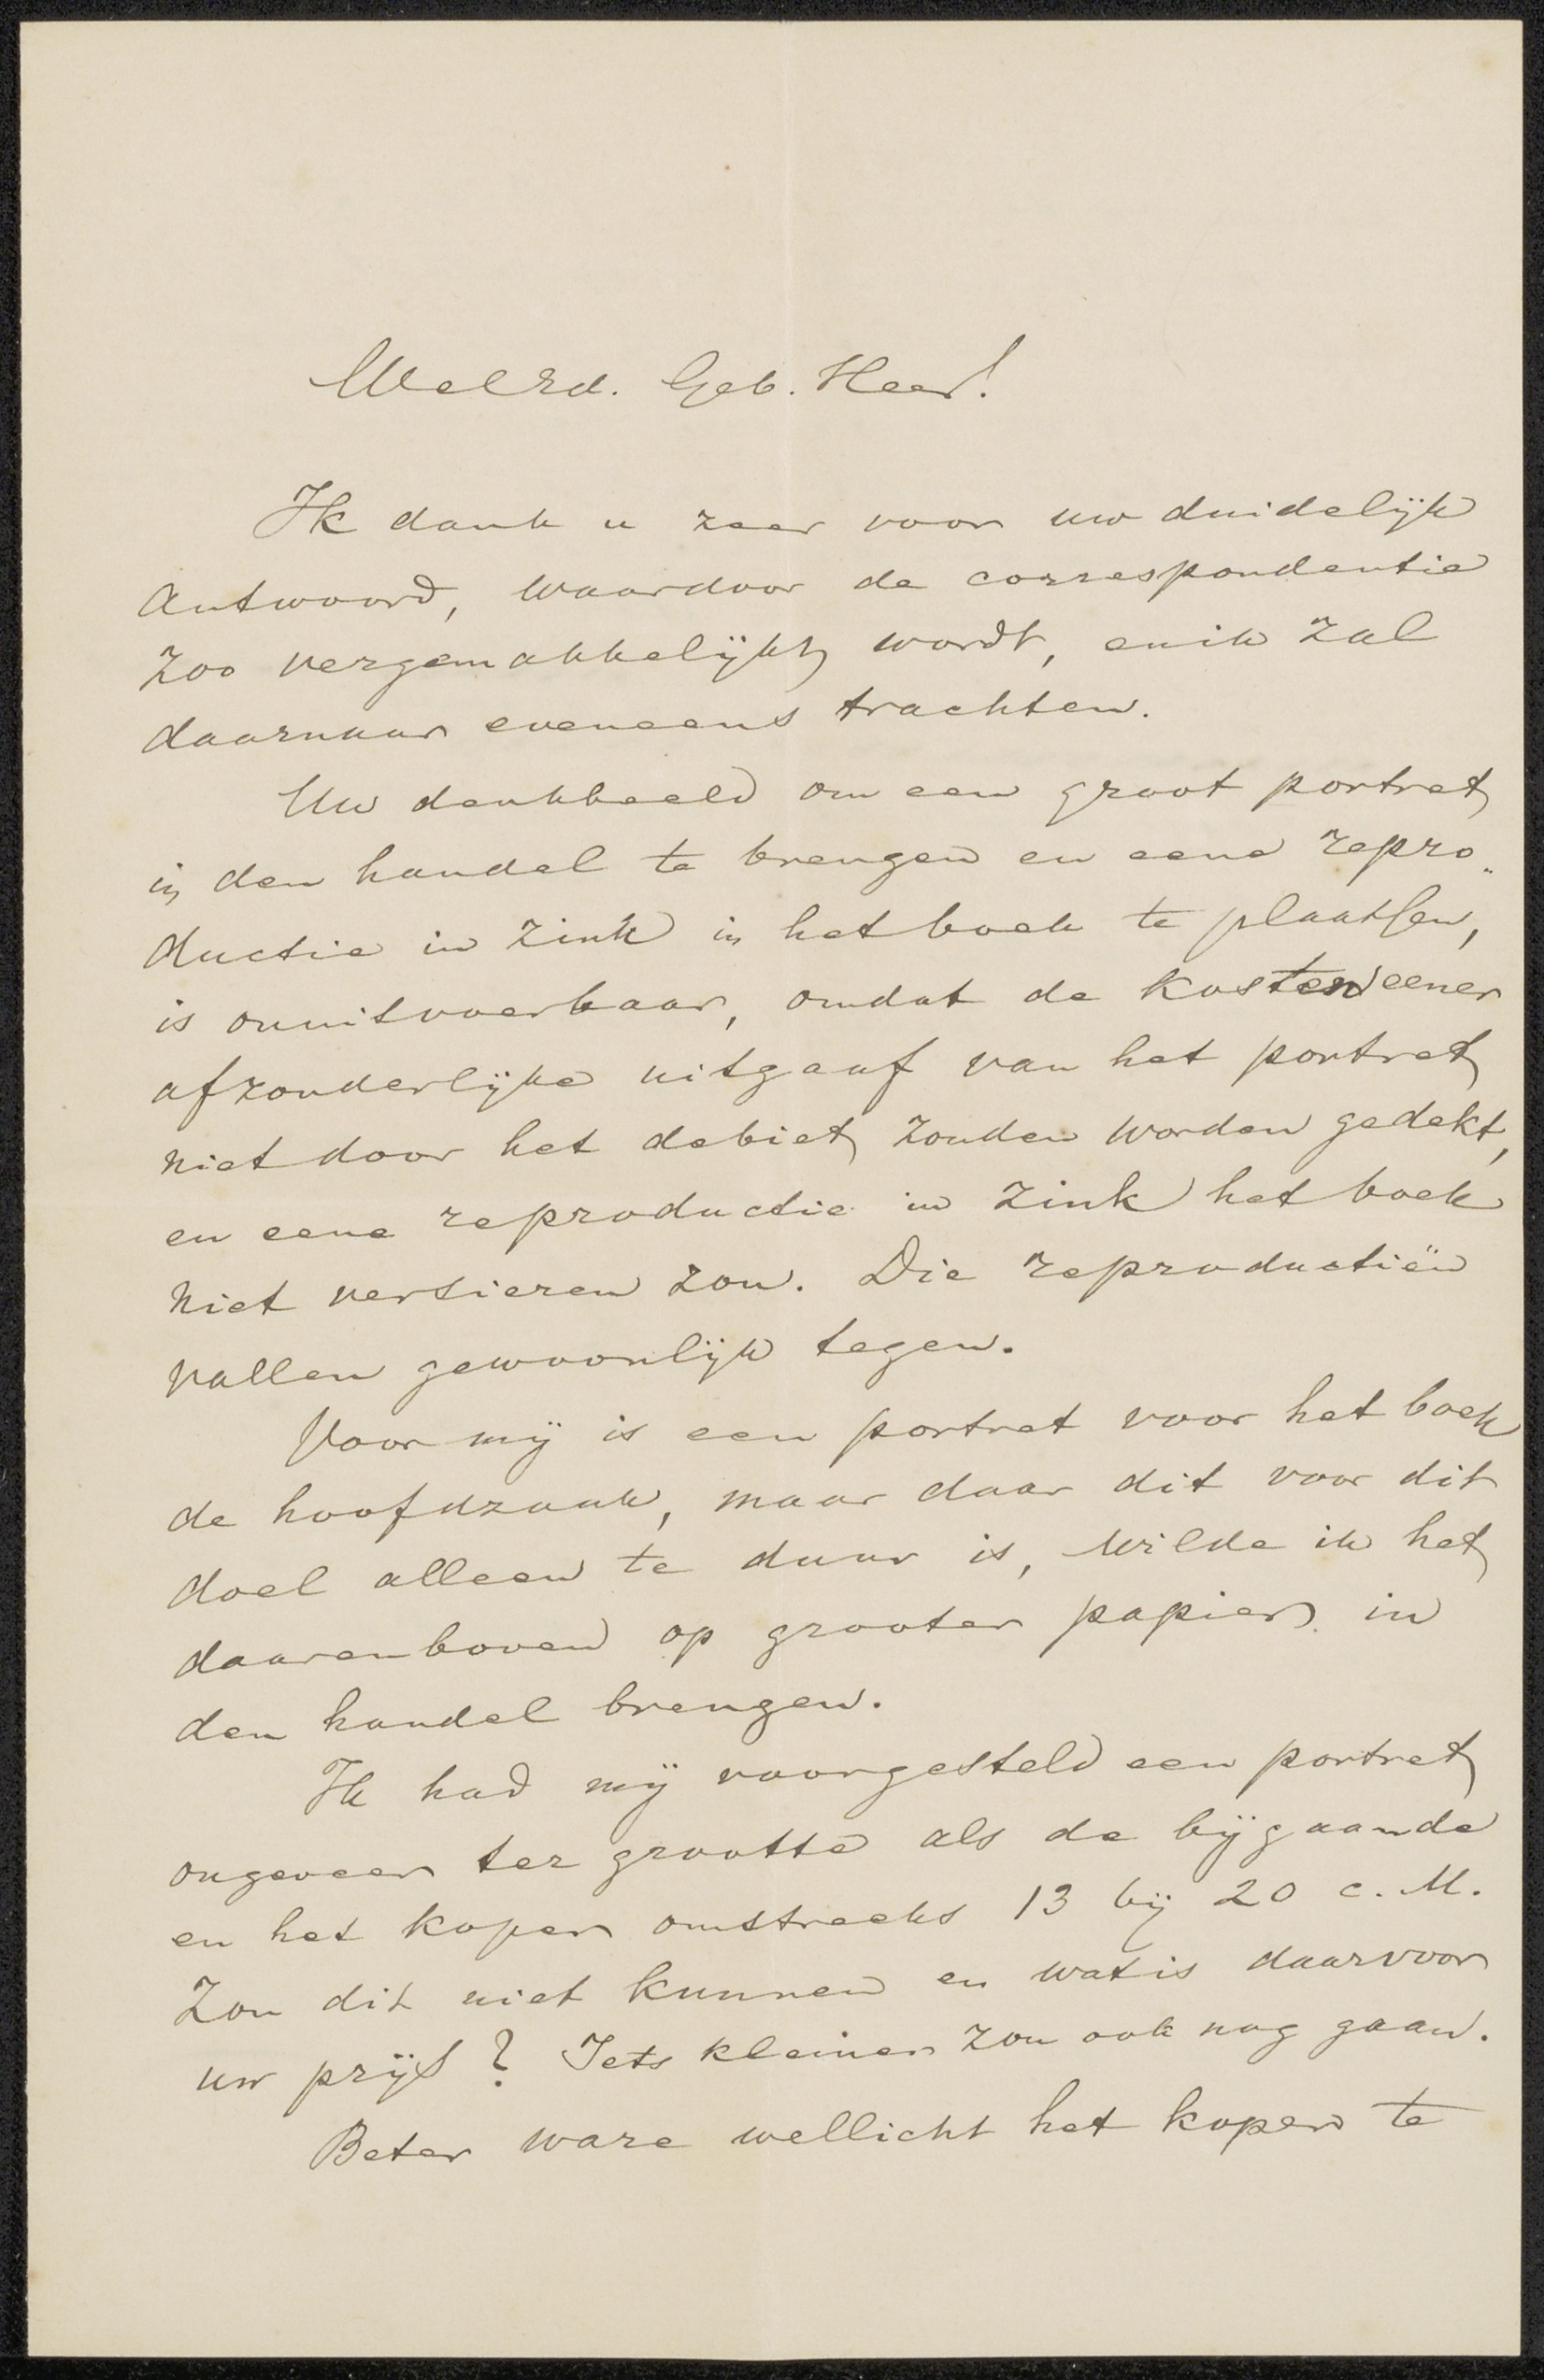 WelEd. Geb. Heer!
Ik dank u zeer voor uw duidelijk
antwoord, waardoor de correspondentie
zoo vergemakkelijkt wordt, en ik zal
daarnaar eveneens trachten.
Uw denkbeeld om een groot portret
in den handel te brengen en eene repro„
ductie in zink in het boek te plaatsen,
is onuitvoerbaar, omdat de kosten eener
afzonderlijke uitgaaf van het portret
niet door het debiet zouden worden gedekt,
en eene reproductie in zink het boek
niet versieren zou. Die reproductiën
vallen gewoonlijk tegen.
Voor mij is een portret voor het boek
de hoofdzaak, maar daar dit voor dit
doel alleen te duur is, wilde ik het
daarenboven op grooter papier in
den handel brengen.
Ik had mij voorgesteld een portret
ongeveer ter grootte als de bijgaande
en het koper omstreeks 13 bij 20 c.M.
Zou dit niet kunnen en wat is daarvoor
uw prijs? Iets kleiner zou ook nog gaan.
Beter ware wellicht het koper te